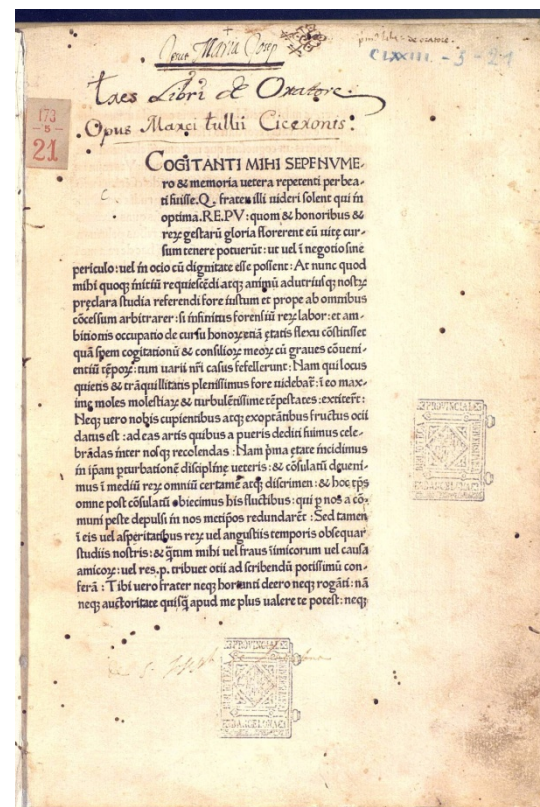 Maria
CLXXIII - 5 - 21
tres Libri de Oratore.
Opus Marci tullii Ciceronis:
173
- 5 -
21
COGITANTI MIHI SEPENVME-
ro & memoria uetera repetenti perbea-
ti fuisse .Q. frater illi uideri solent qui in
optima .RE.PV: quom & honoribus &
reꝝ gestarū gloria florerent eū uitę cur-
sum tenere potuerūt: ut uel ī negotio sine
periculo: uel in ocio cū dignitate esse possent: At nunc quod
mihi quoqꝫ initiū requiescēdi atqꝫ animū adutriusqꝫ nostꝝ
pręclara studia referendi fore iustum et prope ab omnibus
cōcessum arbitrarer: si infinitus forensiū reꝝ labor: et am-
bitionis occupatio de cursu honoꝝ etiā ętatis flexu cōstitisset
quā spem cogitationū & consilioꝝ meoꝝ cū graues cōueni-
entiū tēpoꝝ: tum uarii nr̄i casus fefellerunt: Nam qui locus
quietis & trāquillitatis plenissimus fore uidebat̄: ī eo max-
imę moles molestiaꝝ & turbulētissime tēpestates :extiter̄t:
Neqꝫ uero nobis cupientibus atqꝫ exoptātibus fructus ocii
datus est: ad eas artis quibus a pueris dediti fuimus cele-
brādas inter nosqꝫ recolendas: Nam p̄ma ętate incidimus
in ip̄am ꝑturbationē disciplinę ueteris: & cōsulatū deueni-
mus ī mediū reꝝ omniū certamē atqꝫ discrimen: & hoc tp̄s
omne post cōsulatū obiecimus his fluctibus: qui ꝑ nos a cō-
muni peste depulsi in nos metip̄os redundarēt: Sed tamen
ī eis uel asperitatibus reꝝ uel angustiis temporis obsequar
studiis nostris: & q̄tum mihi uel fraus īimicorum uel causa
amicoꝝ: uel res.p. tribuet otii ad scribendū potissimū con-
ferā: Tibi uero frater neqꝫ hortanti deero neqꝫ rogāti: nā
neqꝫ auctoritate quisq̄ apud me plus ualere te potest: neqꝫ
PROVINCIALES
BIBLIOTECA
PROVINCIALES
BIBLIOTECA